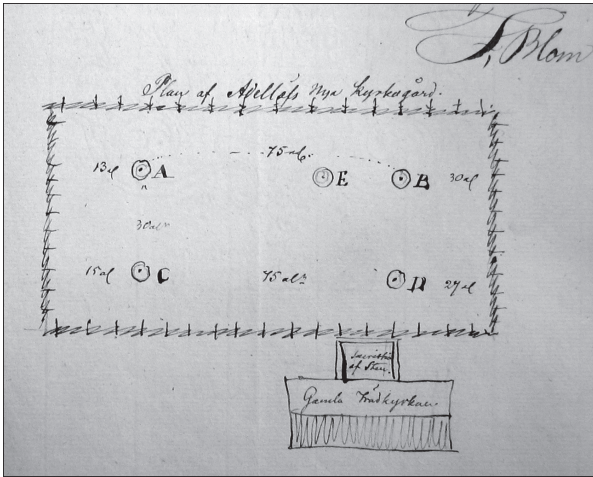 F, Blom
Plan af Adellöfs Nya Kyrkogård.
75 al.
13 al A E B 30 al
30 aln
15 al C 75 aln D 27 al
Sacristia
af Sten.
Gamla Trädkyrkan